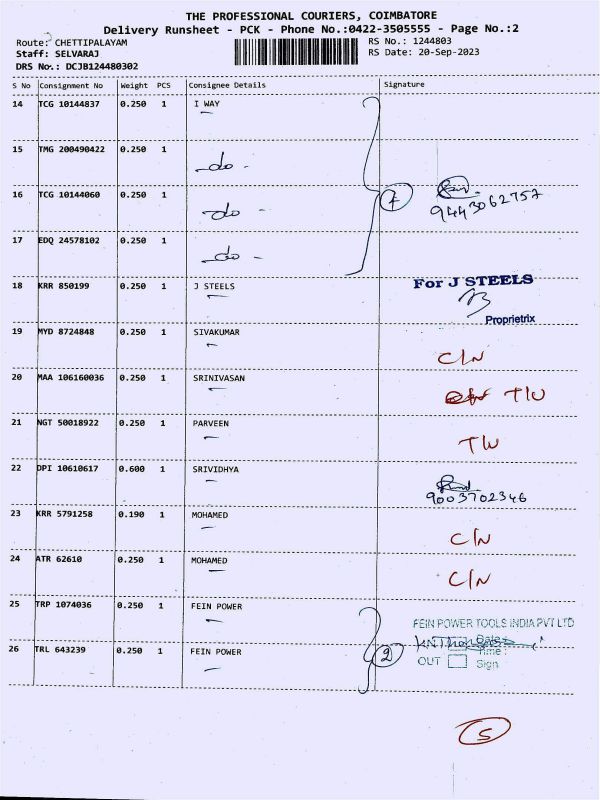 THE PROFESSIONAL COURIERS, COIMBATORE
Delivery Runsheet - PCK - Phone No.:0422-3505555 - Page No.:2
Route: CHETTIPALAYAM RS No.: 1244803
Staff: SELVARAJ RS Date: 20-Sep-2023
DRS No.: DCJB124480302
S No Consignment No Weight PCS Consignee Details Signature
14 TCG 10144837 0.250 1 I WAY
15 TMG 200490422 0.250 1 -do-
16 TCG 10144060 0.250 1 -do- 7 9443062757
17 EDQ 24578102 0.250 1 -do-
18 KRR 850199 0.250 1 J STEELS For J STEELS
Proprietrix
19 MYD 8724848 0.250 1 SIVAKUMAR C/N
20 MAA 106160036 0.250 1 SRINIVASAN T/U
21 NGT 50018922 0.250 1 PARVEEN
22 DPI 10610617 0.600 1 SRIVIDHYA 9003702346
23 KRR 5791258 0.190 1 MOHAMED C/N
24 ATR 62610 0.250 1 MOHAMED C/N
25 TRP 1074036 0.250 1 FEIN POWER FEIN POWER TOOLS INDIA PVT LTD
Date
26 TRL 643239 0.250 1 FEIN POWER 2 Time :
OUT Sign
5